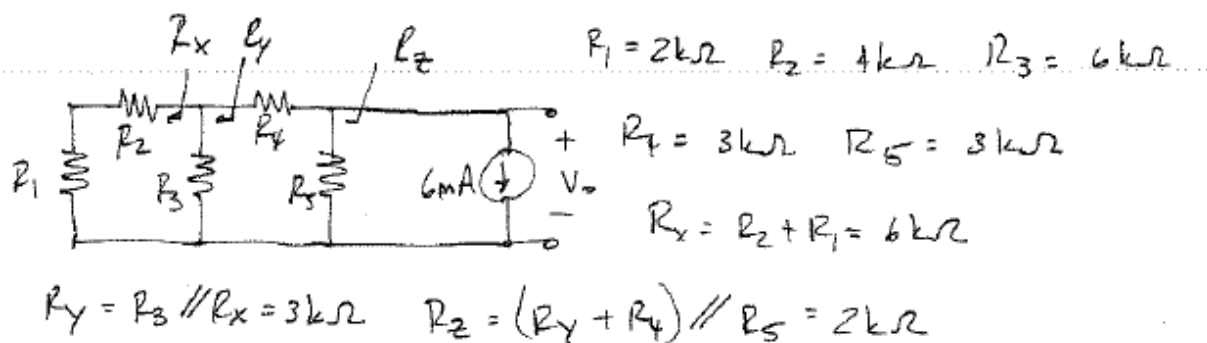 Rx Ry Rz R₁ = 2kΩ R₂ = 4kΩ R₃ = 6kΩ
R₂ R₄
R₁ R₃ R₅ 6mA + V₀ − R₄ = 3kΩ R₅ = 3kΩ
Rx = R₂ + R₁ = 6kΩ
Ry = R₃ // Rx = 3kΩ Rz = (Ry + R₄) // R₅ = 2kΩ